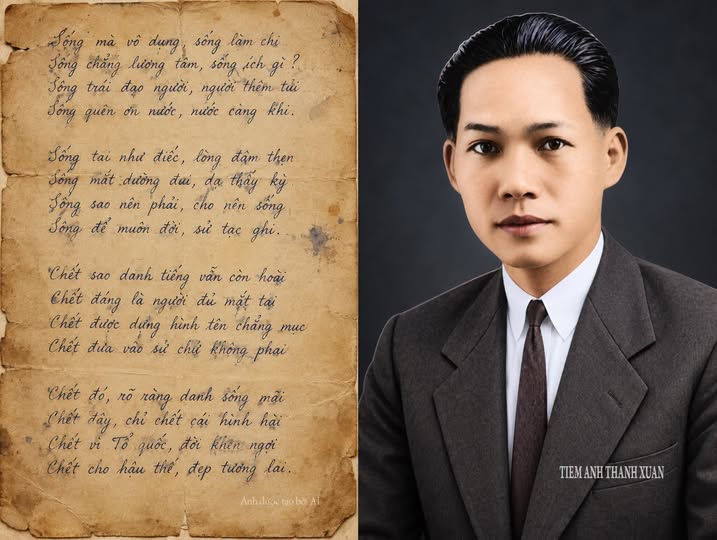 Sống mà vô dụng, sống làm chi
Sống chẳng lương tâm, sống ích gì?
Sống trái đạo người, người thêm tủi
Sống quên ơn nước, nước càng khi.
Sống tai như điếc, lòng đâm thẹn
Sống mắt dường đui, dạ thấy kỳ
Sống sao nên phải, cho nên sống
Sống để muôn đời, sử tạc ghi.
Chết sao danh tiếng vẫn còn hoài
Chết đáng là người đủ mắt tai
Chết được dựng hình tên chẳng mục
Chết đưa vào sử chữ không phai
Chết đó, rõ ràng danh sống mãi
Chết đây, chỉ chết cái hình hài
Chết vì Tổ quốc, đời khen ngợi
Chết cho hậu thế, đẹp tương lai.
Ảnh được tạo bởi AI
TIEM ANH THANH XUAN